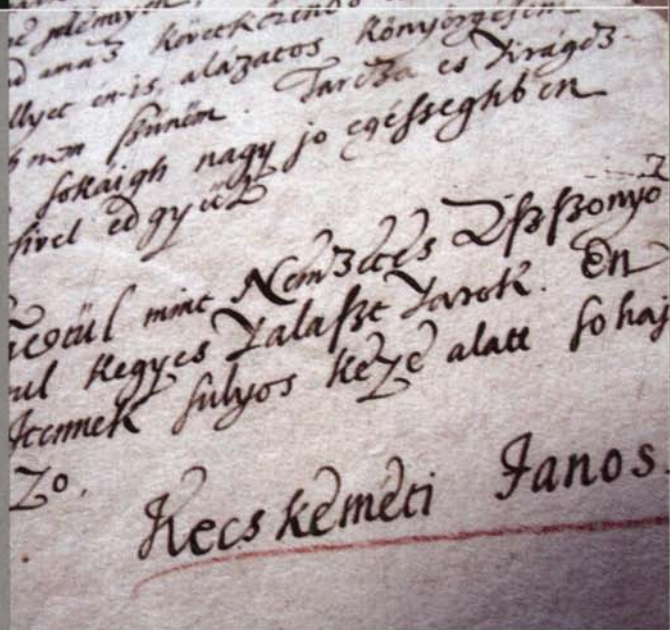 amaz következendő
llyet én-is, alázatos könyörgésem
nem szűnöm. Tarcza es Virágoz
sokáigh nagy jo egésseghben
sivel edgyütt
mint Nemzetes Aszszonyo
ul kegyes Valaszt varok. En
Istennek sulyos keze alatt sohaj
zo.
Kecskeméti Janos.